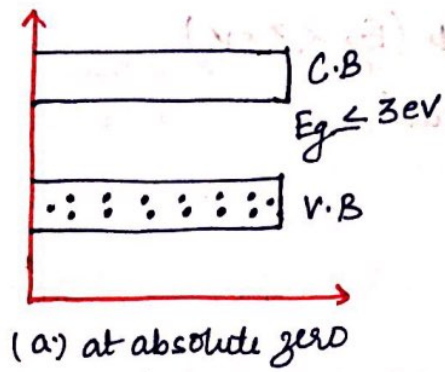 C.B
Eg < 3ev
V.B
(a.) at absolute zero